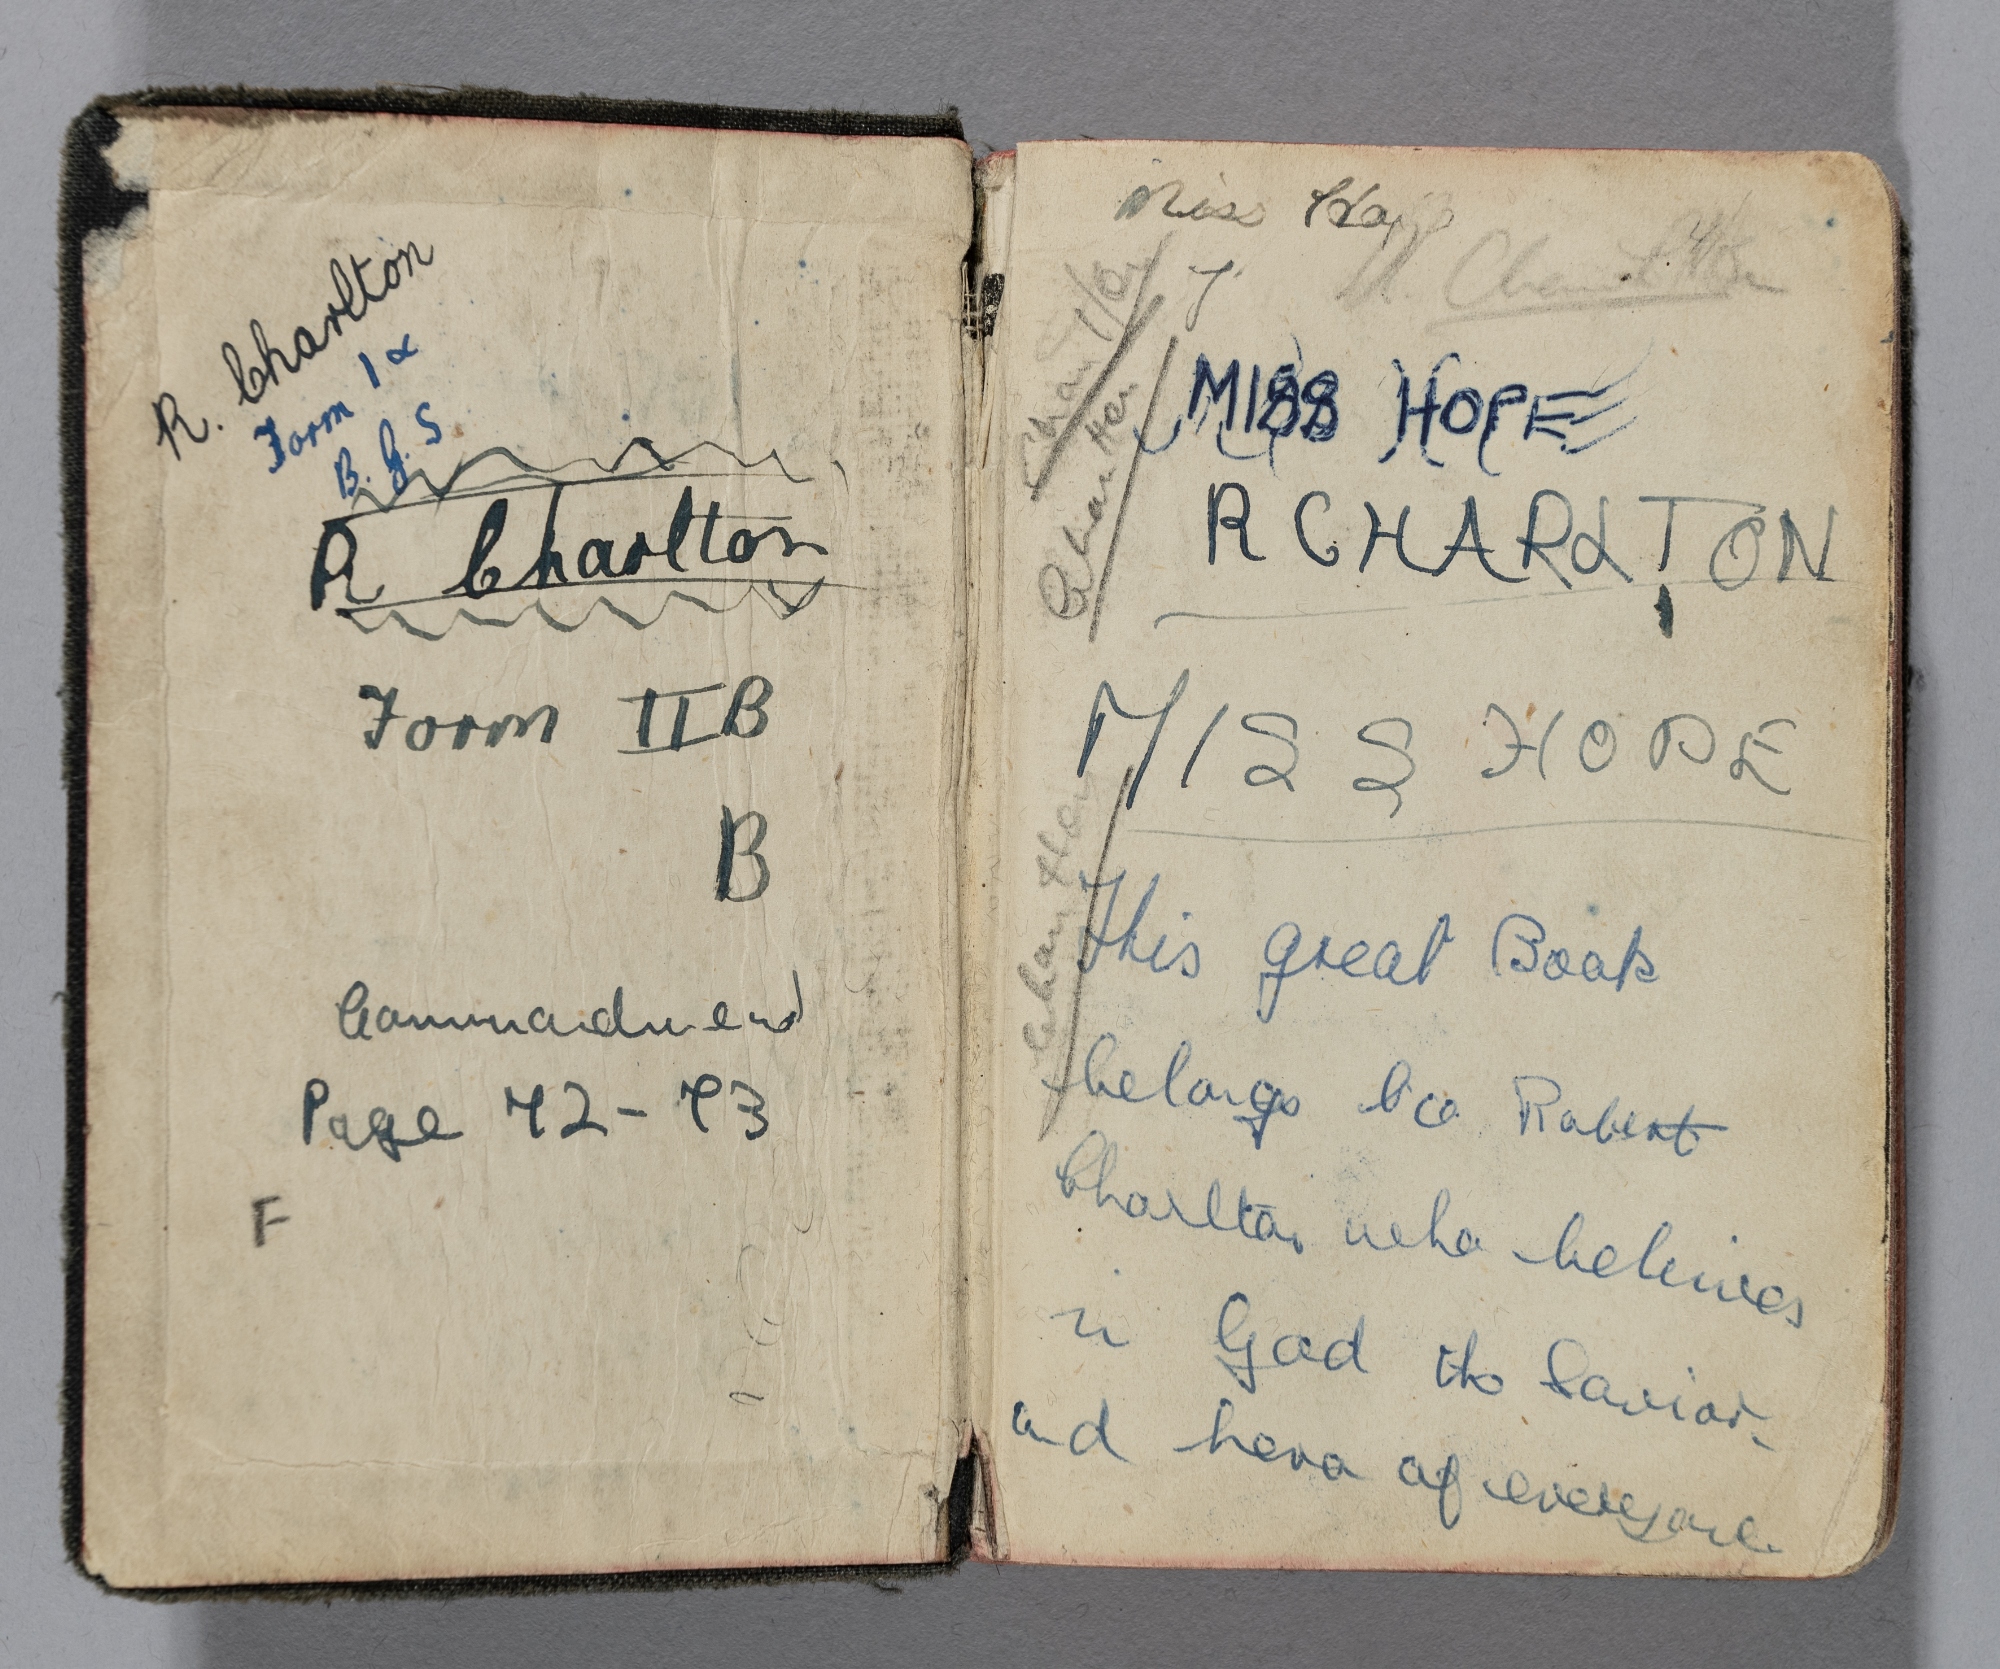 R. Charlton
Form 1α
B. G. S
R Charlton
Form II B
B
Commandment
Page 72-73
F
Miss
R. Charlton
MISS HOPE
R CHARLTON
MISS HOPE
Charlton
Charlton
Charlton
This great Book
belongs to Robert
Charlton who believes
in God the Savior
and hero of everyone